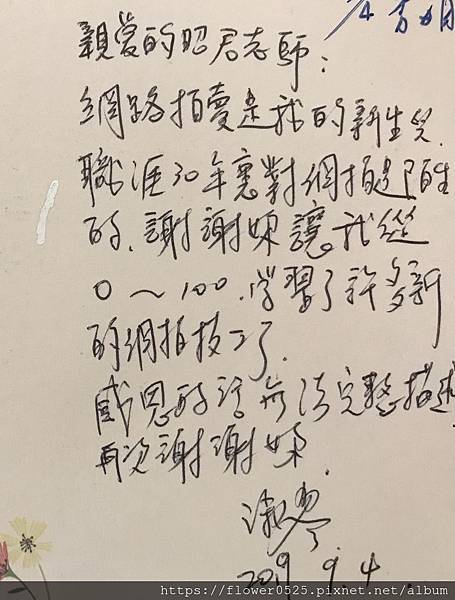 親愛的昭君老師：
網路拍賣是我的新生兒.
職涯30年裏對網拍是陌生
的.謝謝妳讓我從
0～100.學習了許多新
的網拍技巧了.
感恩的話無法完整描述
再次謝謝妳.
淑
2019 9.4.
https://flower0525.pixnet.net/album